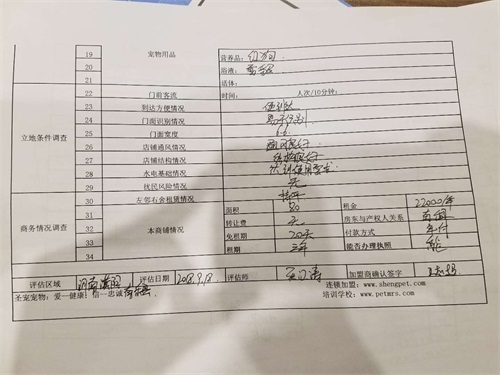 19 宠物用品 营养品:
20 浴液:
21 活体:
立地条件调查
22 门前客流 时间: 人次/10分钟:
23 到达方便情况
24 门面识别情况 易于识别
25 门面宽度 6.6
26 店铺通风情况 通风良好
27 店铺结构情况
28 水电基础情况
29 扰民风险情况 无
商务情况调查
30 左邻右舍租赁情况
31 本商铺情况 面积 80 租金 22000/年
32 转让费 无 房东与产权人关系
33 免租期 20天 付款方式 年付
34 租期 三年 能否办理执照 能
评估区域 评估日期 2018.9.18 评估师 加盟商确认签字
圣宠宠物:爱一健康!信一忠诚 连锁加盟:www.shengpet.com
培训学校:www.petmrs.com